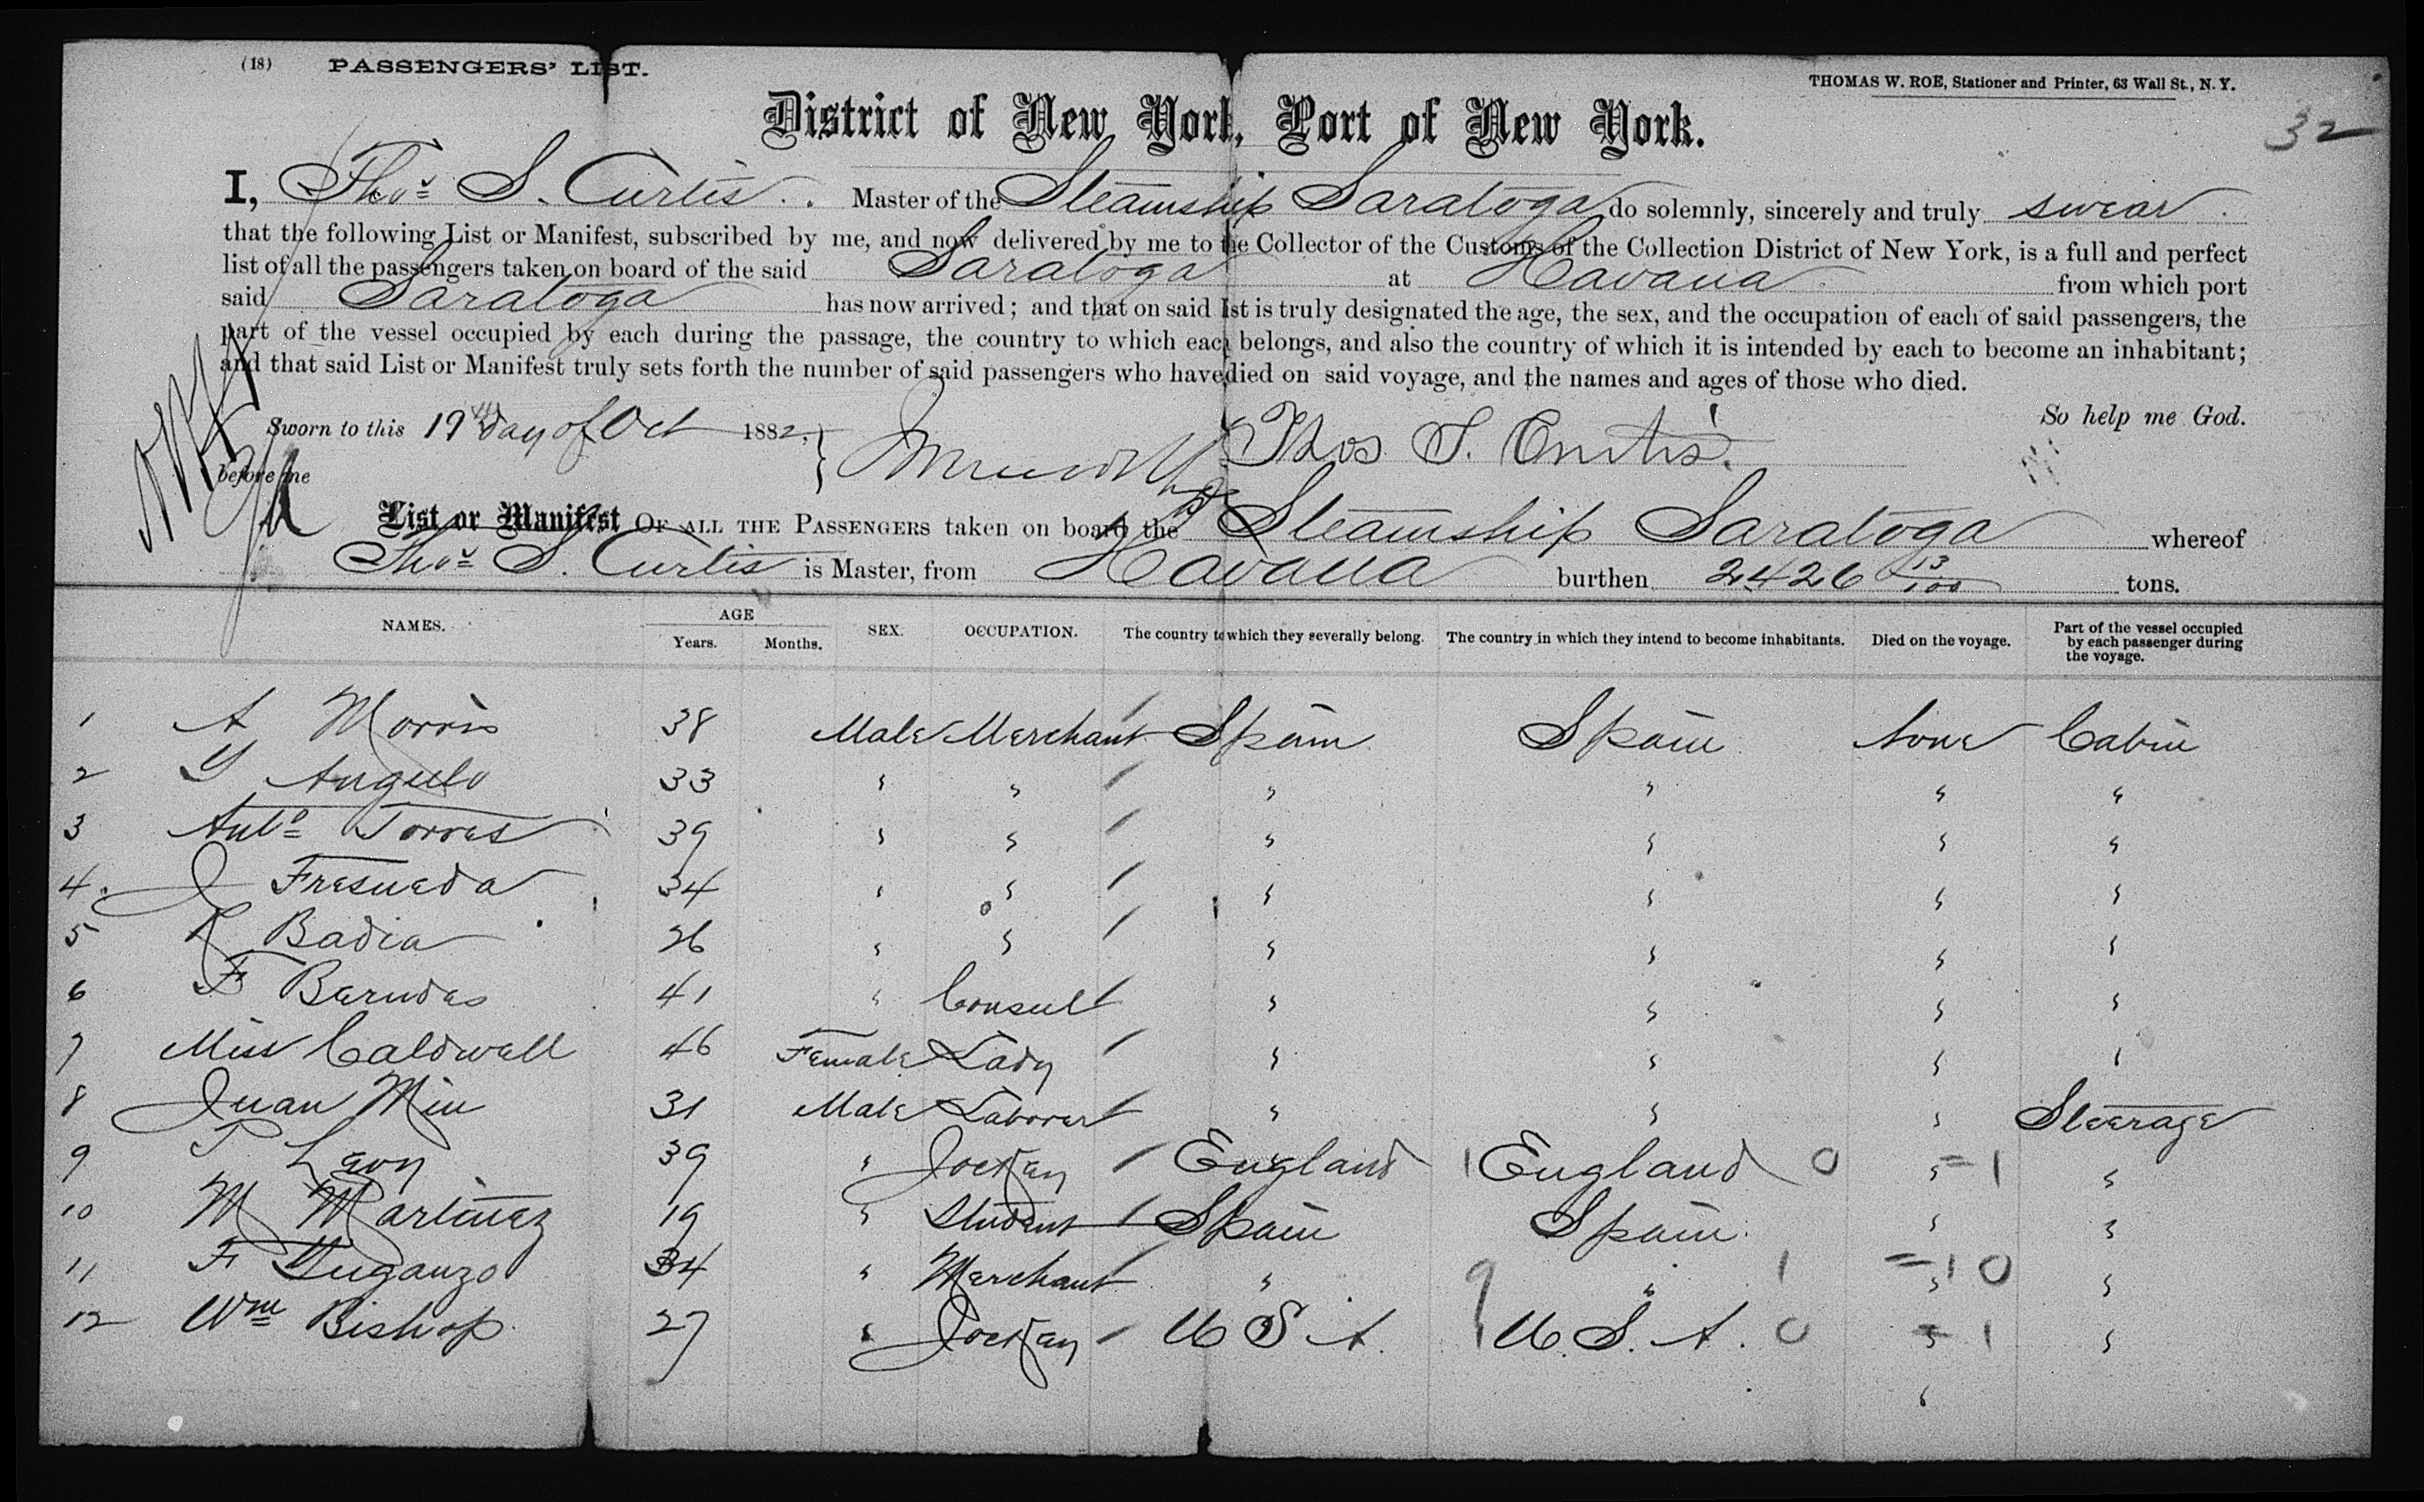 (18) PASSENGERS' LIST.
THOMAS W. ROE, Stationer and Printer, 63 Wall St., N. Y.
32
District of New York, Port of New York.
I, Thos. S. Curtis Master of the Steamship Saratoga do solemnly, sincerely and truly swear
that the following List or Manifest, subscribed by me, and now delivered by me to the Collector of the Customs of the Collection District of New York, is a full and perfect
list of all the passengers taken on board of the said Saratoga at Havana from which port
said Saratoga has now arrived; and that on said list is truly designated the age, the sex, and the occupation of each of said passengers, the
part of the vessel occupied by each during the passage, the country to which each belongs, and also the country of which it is intended by each to become an inhabitant;
and that said List or Manifest truly sets forth the number of said passengers who have died on said voyage, and the names and ages of those who died.
So help me God.
Sworn to this 19th day of Oct 1882, Thos S. Curtis.
before me
List or Manifest OF ALL THE PASSENGERS taken on board the Steamship Saratoga whereof
Thos. S. Curtis is Master, from Havana burthen 2426 13/100 tons.
NAMES. AGE Years. Months. SEX. OCCUPATION. The country to which they severally belong. The country in which they intend to become inhabitants. Died on the voyage. Part of the vessel occupied by each passenger during the voyage.
1 A Morris 38 Male Merchant / Spain Spain None Cabin
2 Y Angulo 33 " " / " " " "
3 Anto Torres 39 " " / " " " "
4. J Fresneda 34 " " / " " " "
5 R Badia 26 " " / " " " "
6 F Berndes 41 " Consul / " " " "
7 Miss Caldwell 46 Female Lady / " " " "
8 Juan Min 31 Male Laborer / " " " Steerage
9 Levy 39 " Jockey / England 1 England 0 " = 1 "
10 M Martinez 19 " Student / Spain Spain " "
11 F 34 " Merchant / " 9 " 1 " = 10 "
12 Wm Bishop 27 " Jockey / U S A. 1 U. S. A. 0 " = 1 "
"